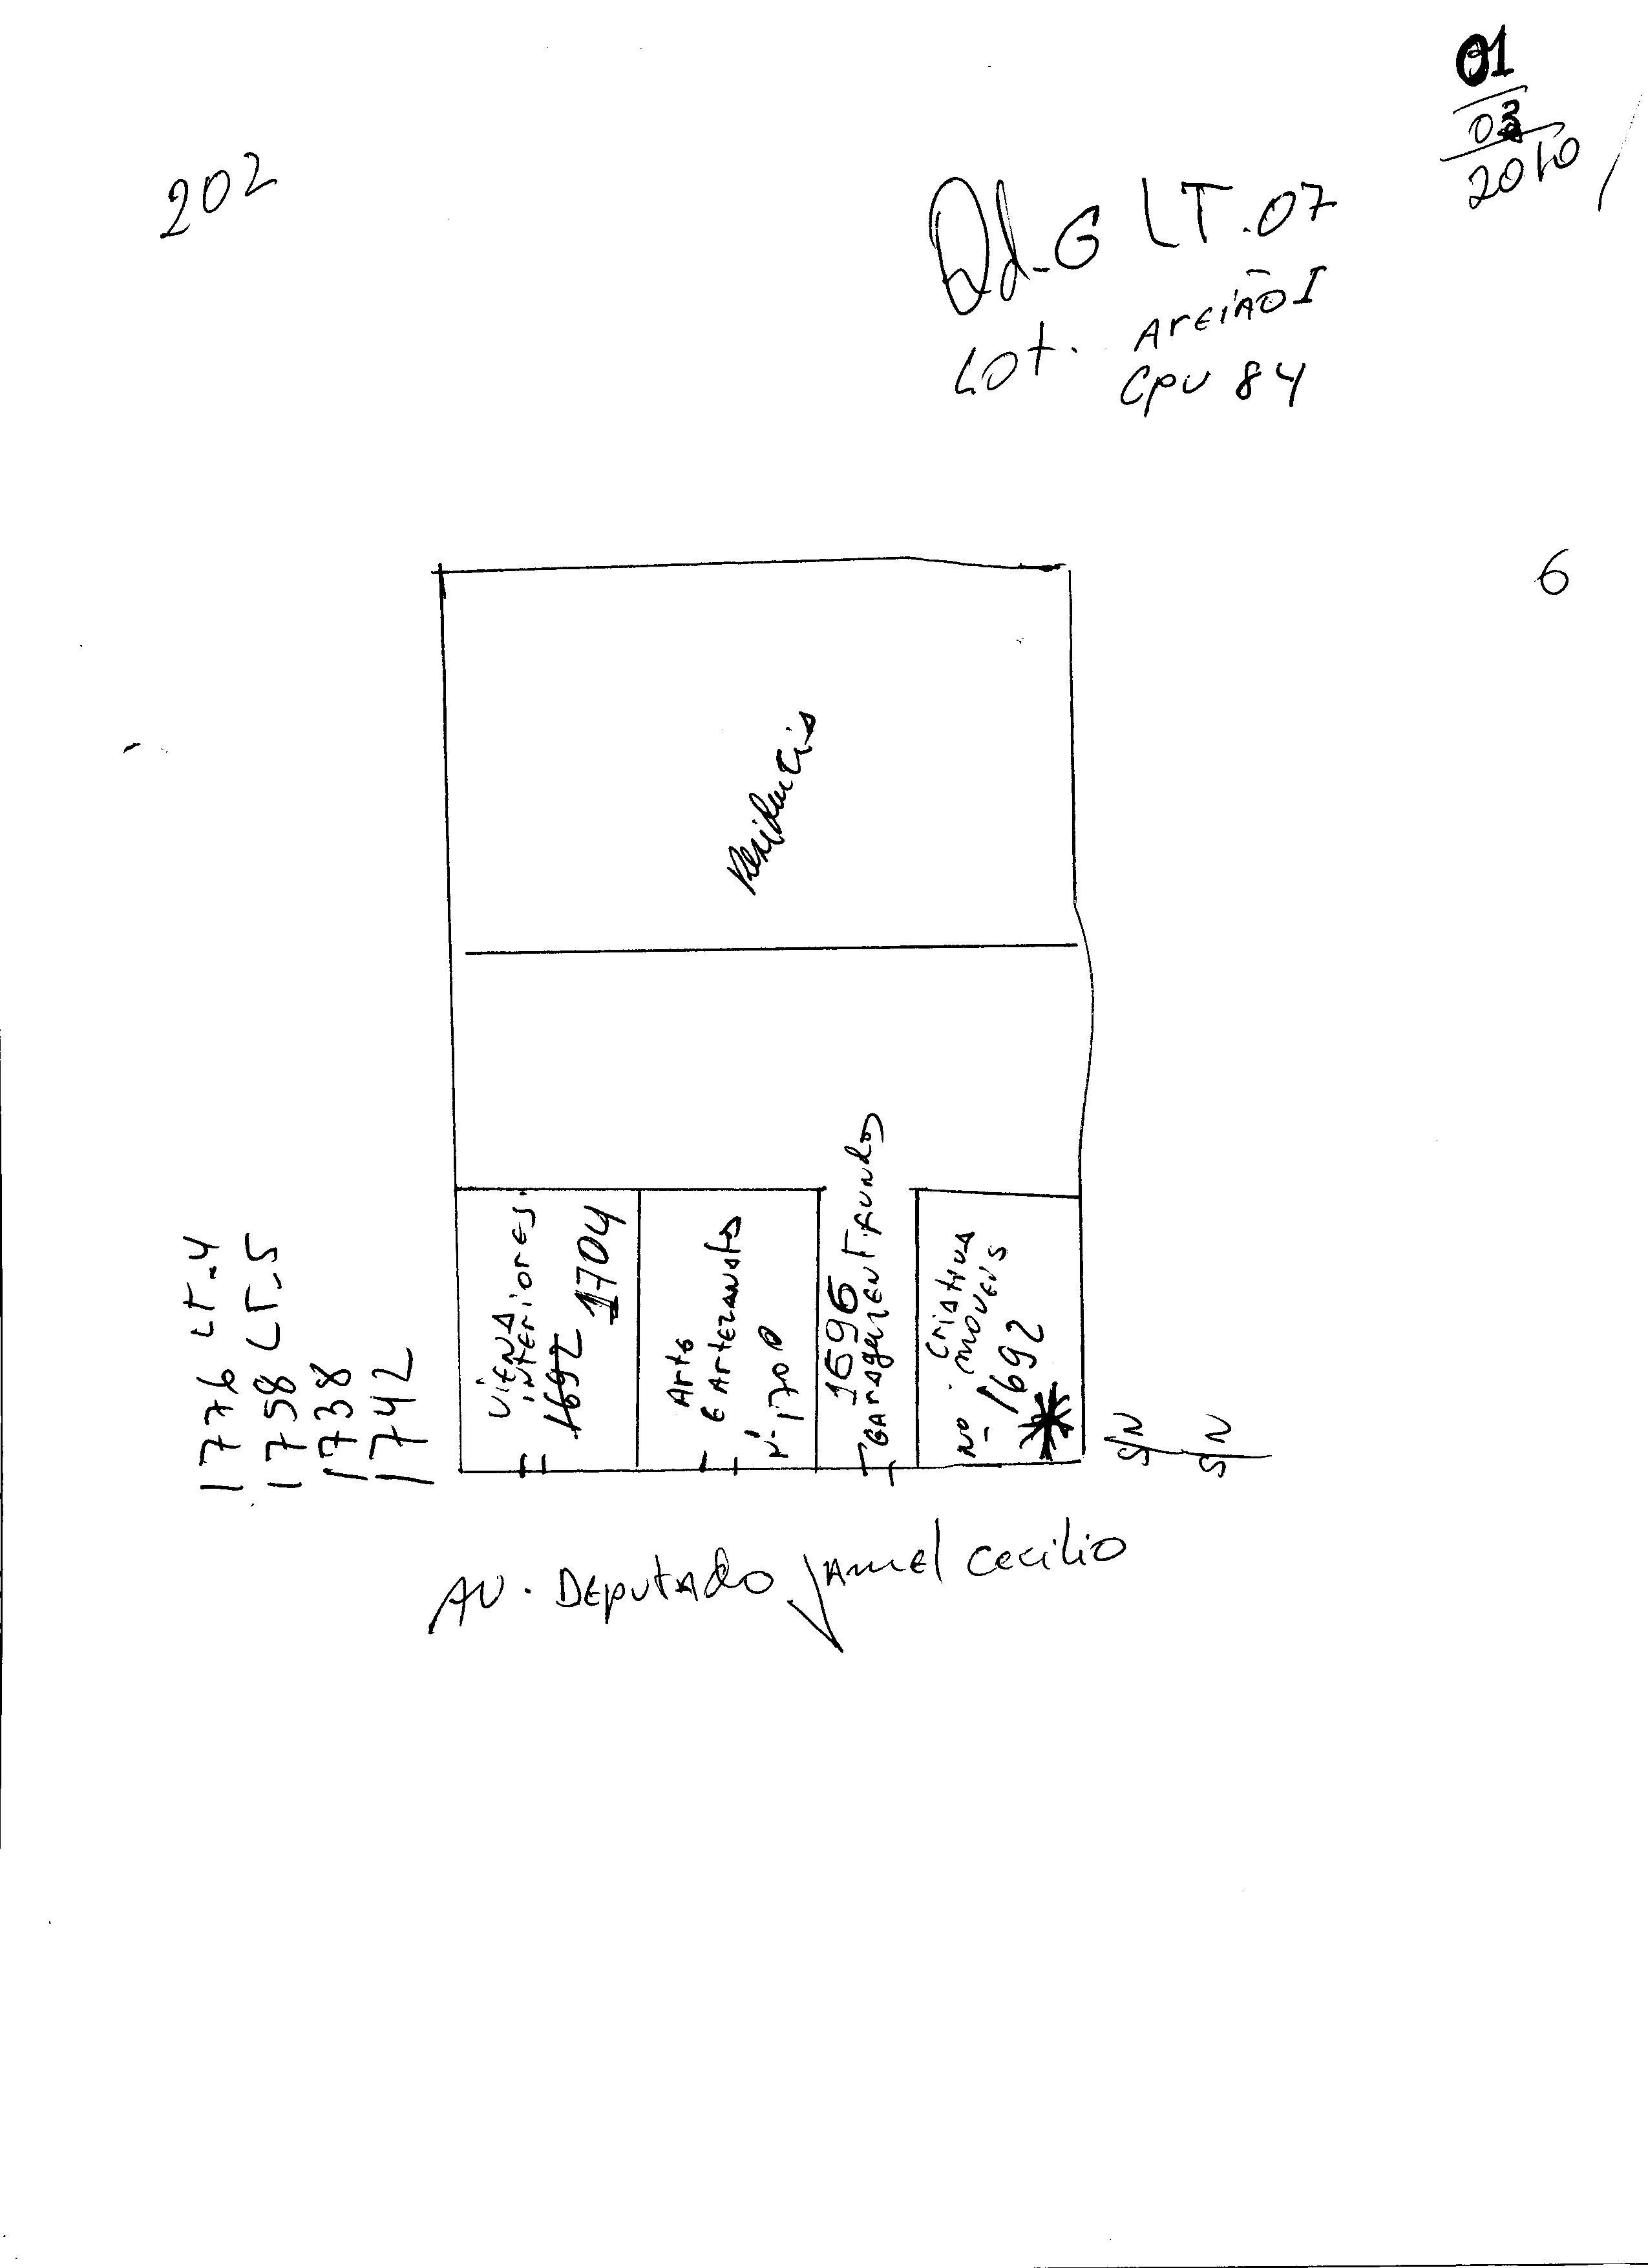 01
03
2010
202
Qd-G LT.07
Lot. AreiãoI
Cpu 84
6
Residencia
1776 LT-4
1758 LT-5
1738
1742
Viena
interiores
1692
1704
Arte
e Artezanato
Nº 1700
1696
Garagem
Fundos
Criativa
moveis
No - 1692
S/N
S/N
AV. Deputado Jamel Cecilio